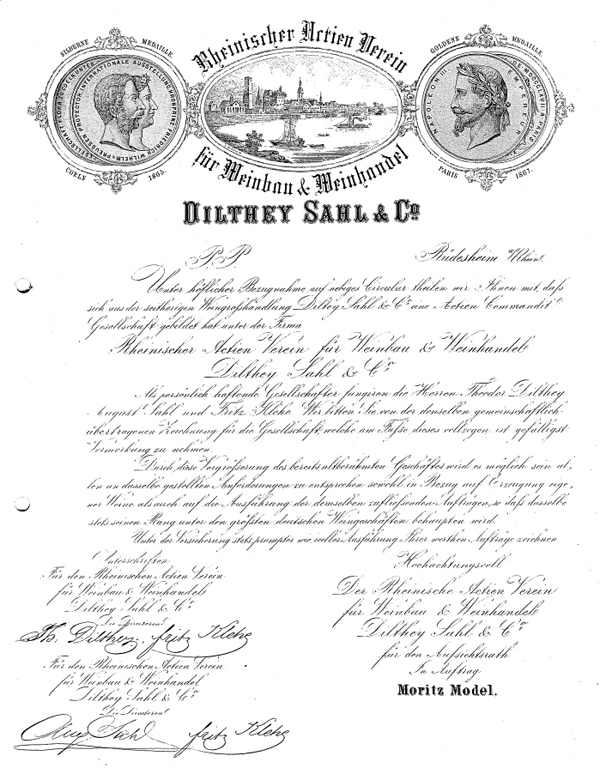 Rheinischer Actien Verein
SILBERNE MEDAILLE
GOLDENE MEDAILLE
NAPOLEON III EMPEREUR
COELN 1865.
PARIS 1867.
für Weinbau & Weinhandel
DILTHEY SAHL & Cº
P. P.
Rüdesheim a/Rhein.
Unter höflicher Bezugnahme auf nebiges Circular theilen wir Ihnen mit, daß
sich aus der seitherigen Weingroßhandlung Dilthey Sahl & Cº eine Actien Commandit
Gesellschaft gebildet hat unter der Firma
Rheinischer Actien Verein für Weinbau & Weinhandel
Dilthey Sahl & Cº
Als persönlich haftende Gesellschafter fungiren die Herren Theodor Dilthey
August Sahl und Fritz Klehe. Wir bitten Sie von der denselben gemeinschaftlich
übertragenen Zeichnung für die Gesellschaft, welche am Fuße dieses vollzogen ist gefälligst
Vormerkung zu nehmen.
Durch diese Vergrößerung des bereits altberühmten Geschäftes wird es möglich sein al-
len an dasselbe gestellten Anforderungen zu entsprechen sowohl in Bezug auf Erzeugung eige-
ner Weine als auch auf die Ausführung der demselben zufließenden Aufträgen, so daß dasselbe
stets seinen Rang unter den größten deutschen Weingeschäften behaupten wird.
Unter der Versicherung stets prompter wie reeller Ausführung Ihrer werthen Aufträge zeichnen
Unterschriften
Für den Rheinischen Actien Verein
für Weinbau & Weinhandel
Dilthey Sahl & Cº
Die Directoren
Th. Dilthey. fritz Klehe
Für den Rheinischen Actien Verein
für Weinbau & Weinhandel
Dilthey Sahl & Cº
Die Directoren
Aug. Sahl fritz Klehe
Hochachtungsvoll
Der Rheinische Actien Verein
für Weinbau & Weinhandel
Dilthey Sahl & Cº
für den Aufsichtsrath
In Auftrag
Moritz Model.